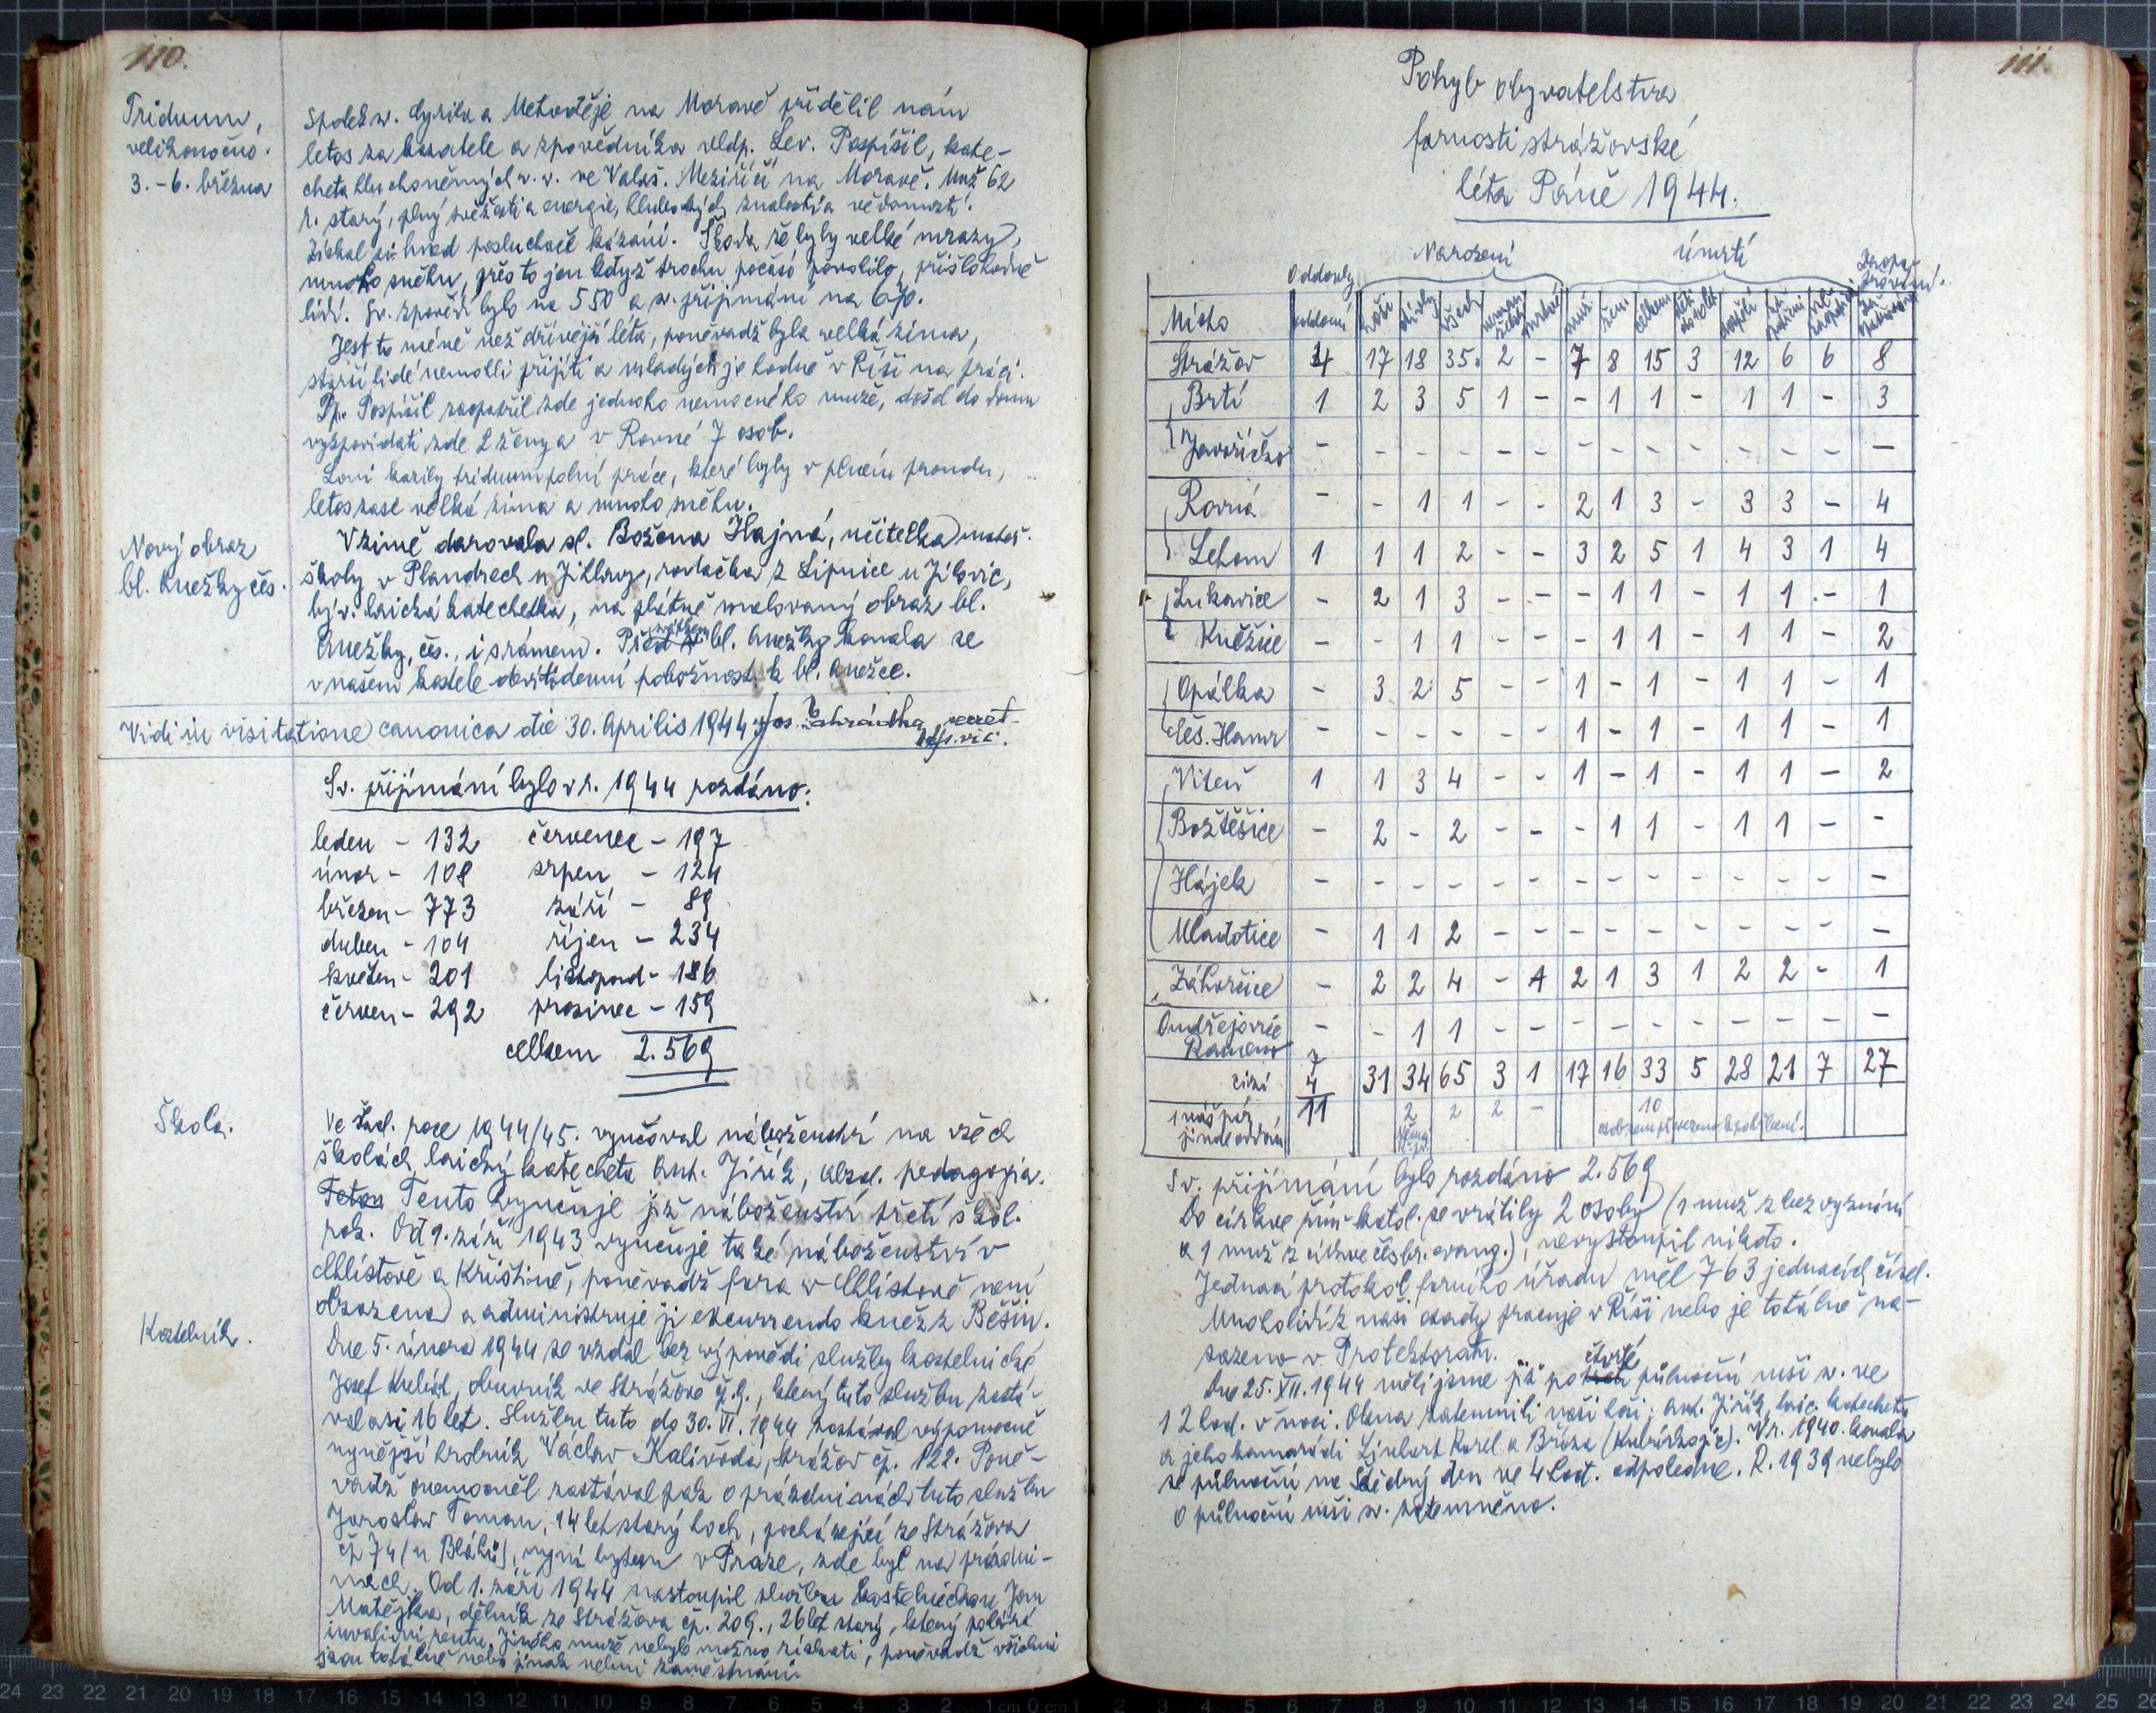 110.
Triduum,
velikonočno.
3. - 6. března
Spolek sv. Cyrila a Metoděje na Moravě přidělil nám
letos za kazatele a zpovědníka vldp. Lev. Pospíšil, kate-
cheta hluchoněmých v. v. ve Valaš. Meziříčí na Moravě. Muž 62
r. starý, plný svěžesti a energie, hlubokých znalostí a vědomostí.
Získal si hned posluchače kázání. Škoda že byly velké mrazy,
mnoho sněhu, přes to jen když trochu počasí povolilo, přišlo hodně
lidí. Sv. zpovědí bylo na 550 a sv. přijímání na 670.
Jest to méně než dřívější léta, poněvadž byla velká zima,
starší lidé nemohli přijíti a mladých je hodně v Říši na práci.
Dp. Pospíšil zaopatřil zde jednoho nemocného muže, došel do domu
vyzpovídati zde 2 ženy a v Rovné 7 osob.
Loni kazily triduum polní práce, které byly v plném proudu,
letos zase velká zima a mnoho sněhu.
Nový obraz
bl. Anežky čes.
V zimě darovala sl. Božena Hajná, učitelka mateř.
školy v Plandrech u Jihlavy, rodačka z Lipnice u Jílovic,
býv. laická katechetka, na plátně malovaný obraz bl.
Anežky čes., i s rámem. Před svátkem bl. Anežky konala se
v našem kostele devítidenní pobožnost k bl. Anežce.
Vidi in visitatione canonica die 30. Aprilis 1944 Jos. Zahrádka, secret.
bisk. vic.
Sv. přijímání bylo v r. 1944 rozdáno:
leden - 132 červenec - 197
únor - 108 srpen - 124
březen - 773 září - 89
duben - 104 říjen - 234
květen - 201 listopad - 186
červen - 292 prosinec - 159
celkem 2.569
Škola.
Ve škol. roce 1944/45. vyučoval náboženství na všech
školách laický katecheta Ant. Jiřík, absol. pedagogia.
Tento vyučuje již náboženství třetí škol.
rok. Od 1. září 1943 vyučuje také náboženství v
Chlístově a Krištíně, poněvadž fara v Chlístově není
obsazena a administruje ji excurrendo kněz z Běšin.
Kostelník.
Dne 5. února 1944 se vzdal bez výpovědi služby kostelnické
Josef Kubát, obuvník ve Strážově č. 9., který tuto službu zastá-
val asi 16 let. Službu tuto do 30. VI. 1944 zastával výpomocně
nynější hrobník Václav Kalivoda, Strážov čp. 122. Poně-
vadž onemocněl zastával pak o prázdninách tuto službu
Jaroslav Toman, 14 let starý hoch, pocházející ze Strážova
čp 74 (u Bláhů), nyní bytem v Praze, zde byl na prázdni-
nách. Od 1. září 1944 nastoupil službu kostelnickou Jan
Matějka, dělník ze Strážova čp. 209., 26 let starý, který pobírá
invalidní rentu. Jiného muže nebylo možno získati, poněvadž všichni
jsou totálně nebo jinak velmi zaměstnáni.
111.
Pohyb obyvatelstva
farnosti strážovské
léta Páně 1944.
Oddavky Narození úmrtí Zaopatrování
Místo oddaní hoši dívky všech neman želské mrtvé muž. žen. celkem dětí do 10 let dospělí zaopatření nezaopatření
Strážov 4 17 18 35. 2 - 7 8 15 3 12 6 6 8
Brtí 1 2 3 5 1 - - 1 1 - 1 1 - 3
Javoříčko - - - - - - - - - - - - - -
Rovná - - 1 1 - - 2 1 3 - 3 3 - 4
Lehom 1 1 1 2 - - 3 2 5 1 4 3 1 4
Lukavice - 2 1 3 - - - 1 1 - 1 1 - 1
Kněžice - - 1 1 - - - 1 1 - 1 1 - 2
Opálka - 3 2 5 - - 1 - 1 - 1 1 - 1
Čes. Hamr - - - - - - 1 - 1 - 1 1 - 1
Viteň 1 1 3 4 - - 1 - 1 - 1 1 - 2
Božtěšice - 2 - 2 - - - 1 1 - 1 1 - -
Hájek - - - - - - - - - - - - - -
Mladotice - 1 1 2 - - - - - - - - - -
Záhorčice - 2 2 4 - 1 2 1 3 1 2 2 - 1
Ondřejovice - - 1 1 - - - - - - - - - -
7
cizí 4 31 34 65 3 1 17 16 33 5 28 21 7 27
1 náš pár 11 2 2 2 - 10
jinde oddán osob sem přivezeno k pohřbení.
Sv. přijímání bylo rozdáno 2.569
Do církve řím-katol. se vrátily 2 osoby (1 muž z bez vyznání
a 1 muž z církve českobr. evang.), nevystoupil nikdo.
Jednací protokol farního úřadu měl 763 jednacích čísel.
Mnoho lidí z naší osady pracuje v Říši nebo je totálně na-
sazeno v Protektorátu.
Dne 25. XII. 1944 měli jsme již po čtvrté půlnoční mši sv. ve
12 hod. v noci. Okna zatemnili naši hoši: Ant. Jiřík, laic. katecheta
a jeho kamarádi Linhart Karel a Bříza. V r. 1940. konala
se půlnoční na Štědrý den ve 4 hod. odpoledne. R. 1939 nebylo
o půlnoční mši sv. zatemněno.